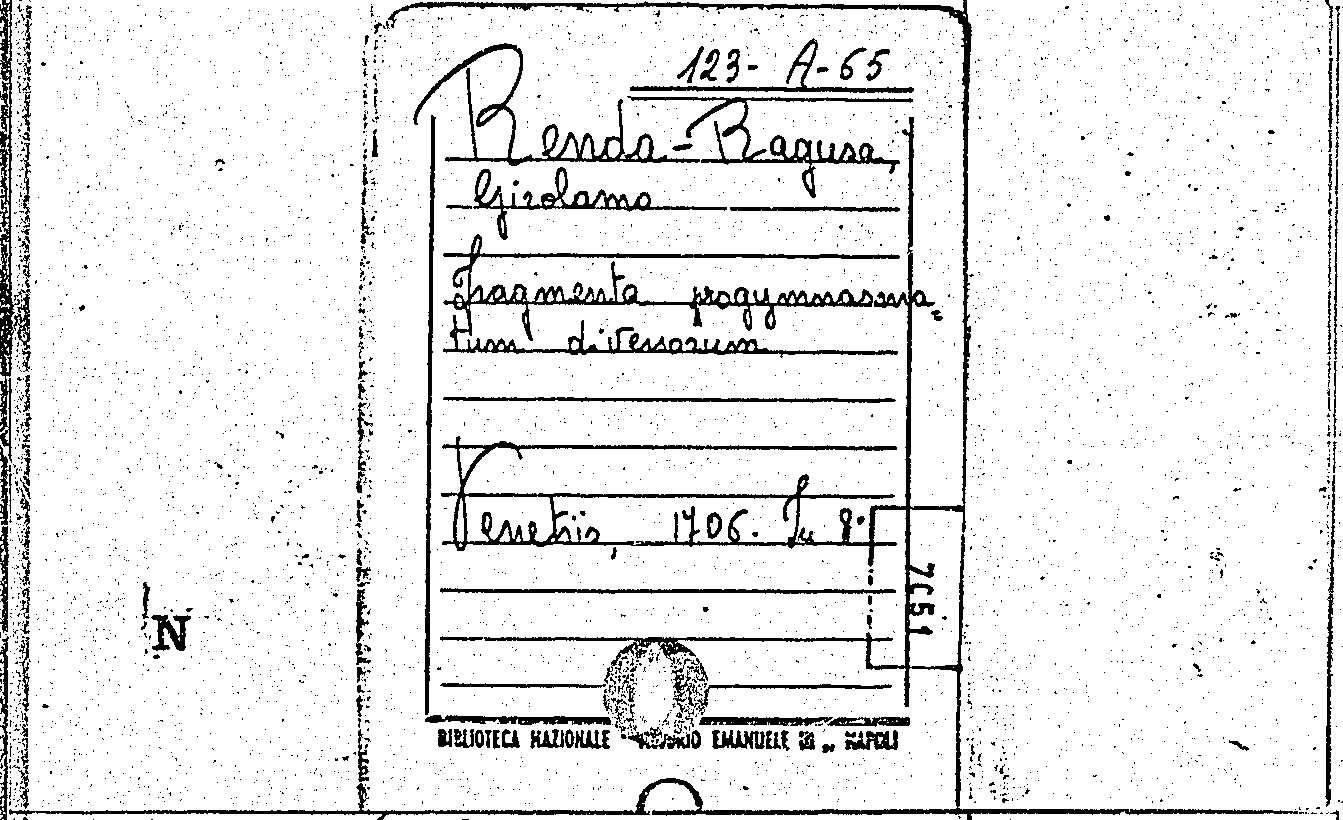 123- A-65
Renda-Ragusa,
Girolamo
Fragmenta progymnasma„
tum diversorum
Venetiis, 1706. In 8.°
7051
N
BIBLIOTECA NAZIONALE " VITTORIO EMANUELE III „ NAPOLI